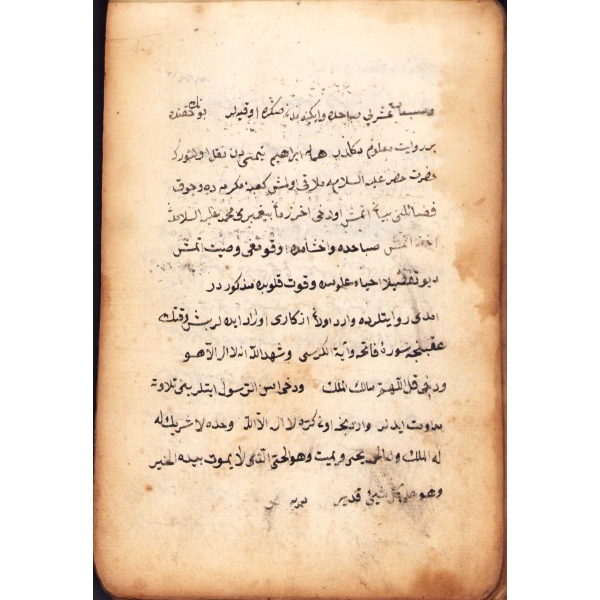 ومسبعات عشرى صباحده وايكندیدن صكره اوقیه لر بونك حقنده
بر روايت معلوم دكلدر همان ابراهيم تيمى دن نقل اولنور كه
حضرت خضر عليه السلامه ملاقى اولمش كعبه مكرمه ده وچوق
فضائلنى بيان اتمش اول دخى اخر زمان پيغمبرى محمد عليه السلامدن
اخذ اتمش صباحده واخشامده اوقومغى وصيت اتمش
ديو تفصيلا احياء علومده وقوت قلوبده مذكور در
امدى روايتلرده وارد اولان اذكارى اوراد ايده لر بش وقتك
عقبنجه سورۀ فاتحه واية الكرسى وشهد الله انه لا اله الا هو
ودخى قل اللهم مالك الملك ودخى امن الرسول ايتلرينى تلاوته
مداومت ايده لر واردنجه اون كره لا اله الا الله وحده لا شريك له
له الملك وله الحمد يحيى ويميت وهو الحى الذى لا يموت بيده الخير
وهو على كل شيئ قدير ديه لر